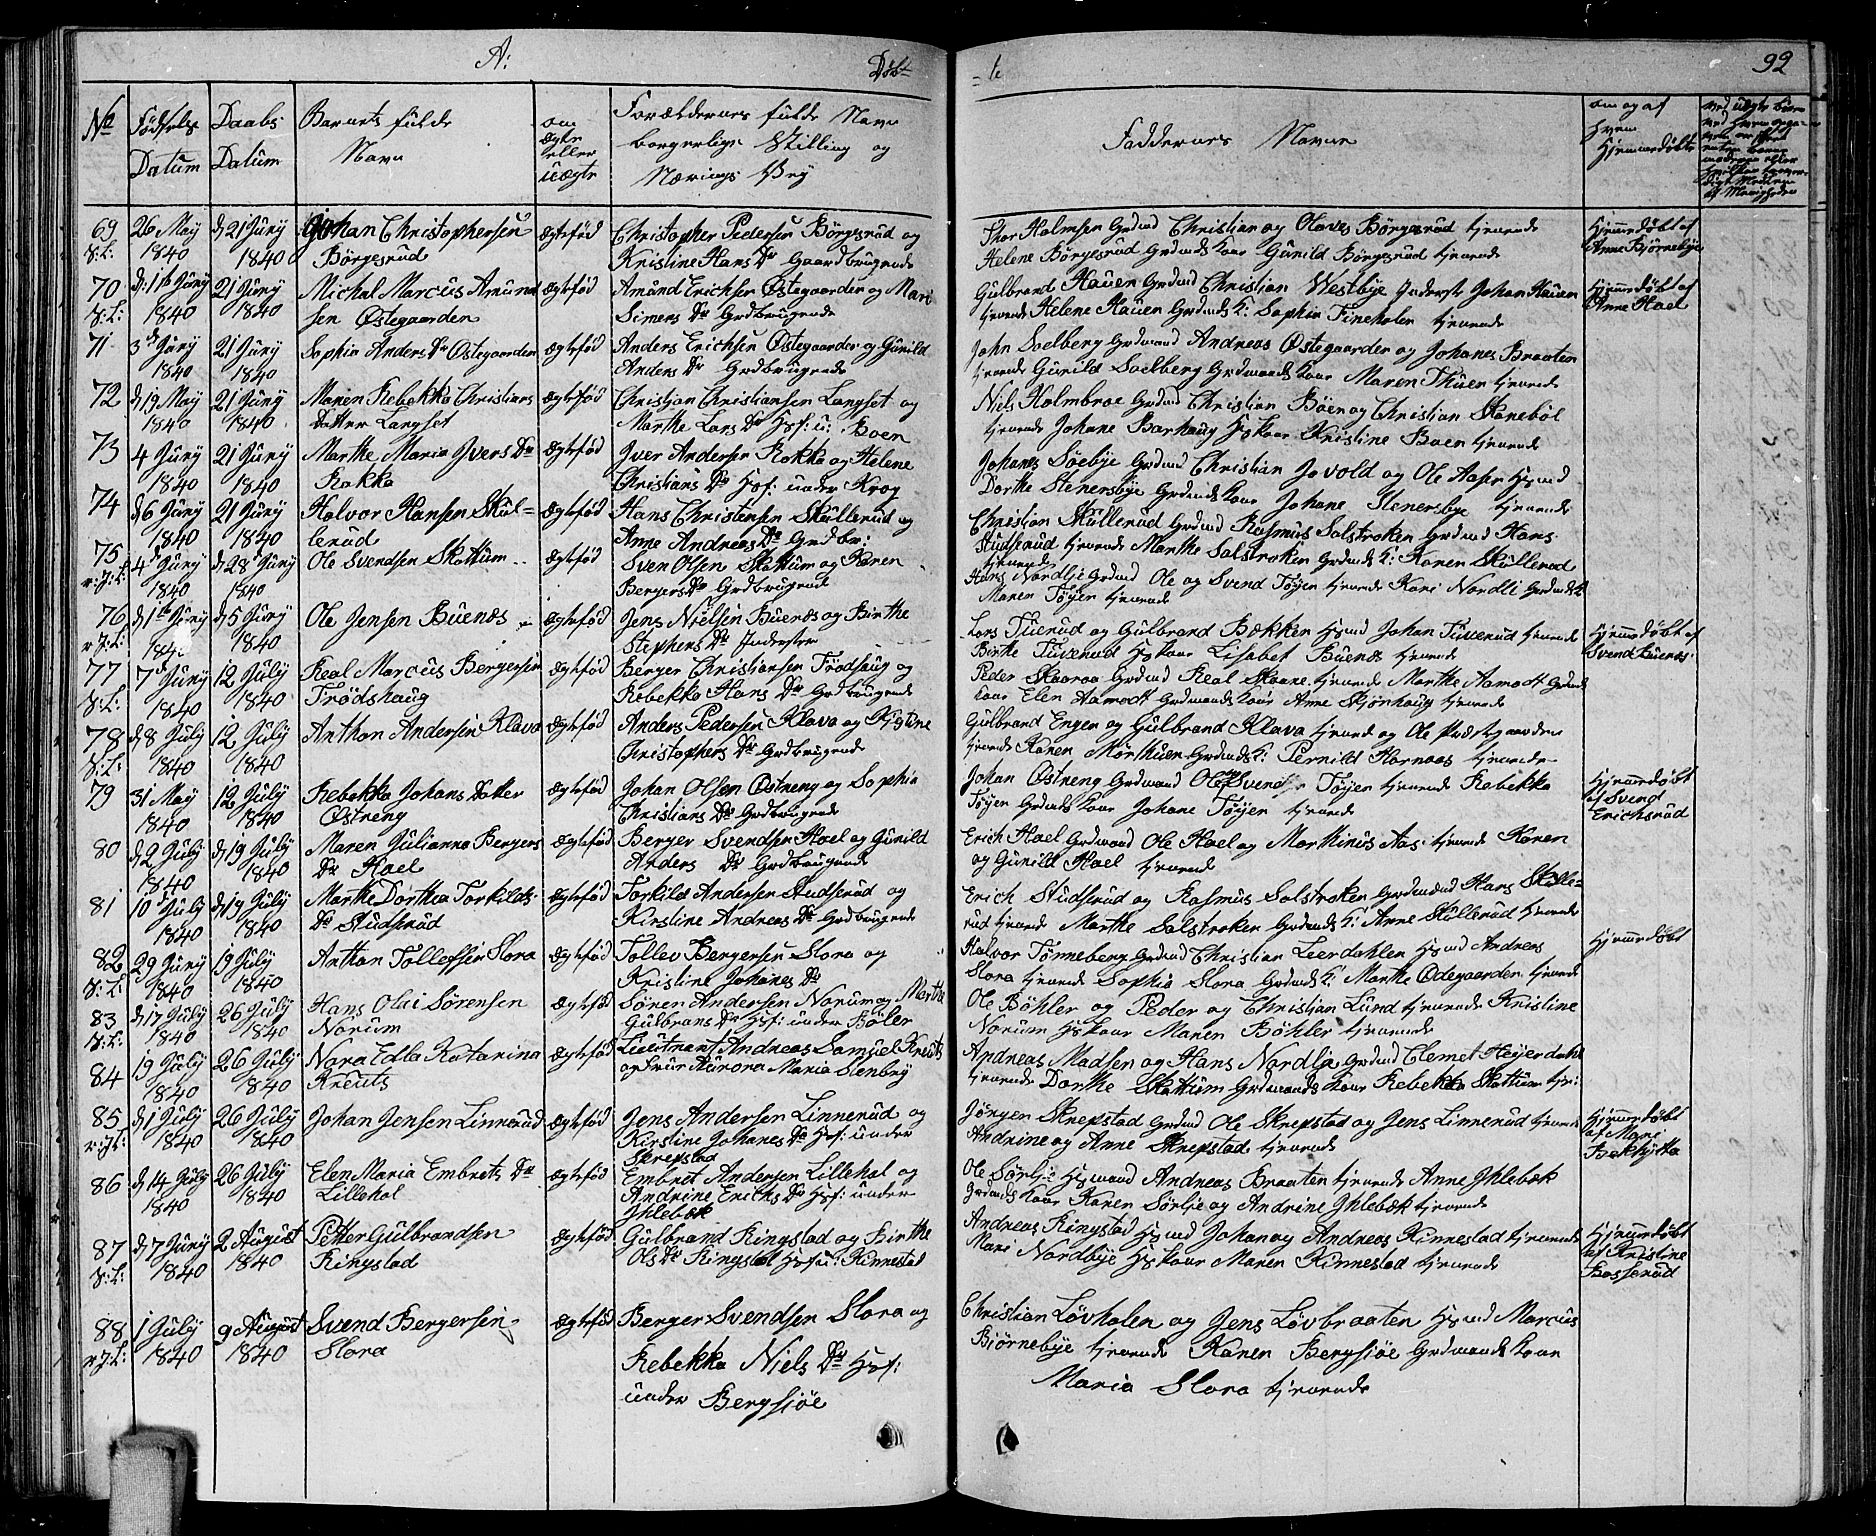 A:
Døbt
- te
92
No
Fødsels
Datum
Daabs
Datum
Barnets fulde
Navn
om
ægte
eller
uægte
Forældernes fulde Navn
borgerlige Stilling og
Nærings Vey
Faddernes Navne
om og af
hvem
hjemmedøbte
69
26 May
1840
d 21 Juny
1840
Johan Christophersen
Børgesrud
Ægtefød
Christopher Pedersen Børgesrud og
Kristine Hans Dr Gaardbrugende
Thor Holmsen Grdmd Christian og Olaves Børgesrud tjenende
Helene Børgesrud Grdmands Kone Gunild Børgesrud tjenende
Hjemmedøbt af
Anne Bjørnebye
70
d: 1ste Juny
1840
21 Juny
1840
Michal Marcus Amund
sen Østegaarden
Ægtefød
Amund Erichsen Østegaarden og Mari
Simens Dr Grdbrugende
Gulbrand Hauen Grdmd Christian Westbye Inderst Johan Hauen
tjenende Helene Hauen Grdmds K: Sophie Fineholen tjenende
Hjemmedøbt af
Anne Hael
71
3de Juny
1840
21 Juny
1840
Sophie Anders Dr Østegaarden
Ægtefød
Anders Erichsen Østegaarden og Gunild
Anders Dr Grdbrugende
John Solberg Grdmand Andreas Østegaarden og Johanes Braaten
tjenende Gunild Solberg Grdmands Kone Maren Thuen tjenende
72
d 19 May
1840
21 Juny
1840
Maren Rebekka Christians
Datter Langset
Ægtefød
Christian Christiansen Langset og
Marthe Lars Dr Hsf: u: Boen
Niels Holmbroe Grdmd Christian Böen og Christian Skanebøl
tjenende Johane Barhaug Hskone Kristine Boen tjenende
73
4 Juny
1840
21 Juny
1840
Marthe Maria Ivers Dr
Rakka
Ægtefød
Iver Andersen Rokka og Helene
Christians Dr Hsf: under Krog
Johanes Soebye Grdmd Christian Jovold og Ole Aaser Hsmd
Dorthe Stenersbye Grdmds Kone Johane Stenersbye tjenende
74
d 6 Juny
1840
21 Juny
1840
Halvor Hansen Skul=
lerud
Ægtefød
Hans Christensen Skullerud og
Anne Andreas Dr Grdbr:
Christian Skullerud Grdmd Rasmus Solstroken Grdmd Hans
Studsrud tjenende Marthe Solstroken Grdmds K: Karen Skullerud
tjenende
75
4de Juny
1840
d. 28de Juny
1840
Ole Svendsen Skattum
Ægtefød
Sven Olsen Skattum og Karen
Bergers Dr Grdbrugende
Hans Nordlje Grdmd Ole og Svend Tøyen tjenende Kari Nordli Grdmds K
Maren Tøyen tjenende
76
d 1ste Juny
1840
d 5 July
1840
Ole Jensen Buenæs
Ægtefød
Jens Nielsen Buenæs og Birthe
Stephens Dr Inderster
Lars Tuerud og Gulbrand Bækken Hsmd Johan Tuverud tjenende
Birthe Tuverud Hskone Lisabet Buenæs tjenende
Hjemmedøbt af
Svend Buenæs.
77
7de Juny
1840
12 July
1840
Real Marcus Bergersen
Trødshaug
Ægtefød
Berger Christiansen Trödshaug og
Rebekka Hans Dr Grdbrugende
Peder Skaaraa Grdmd Real Skaane tjenende Marthe Aamodt Grdmds
Kone Elen Aamodt Grdmands Kone Anne Skjønhaug tjenende
78
d 8 July
1840
12 July
1840
Anthon Andersen Klava
Ægtefød
Anders Pedersen Klava og Kjstine
Christophers Dr Grdbrugende
Gulbrand Enger og Gulbrand Klava tjenende og Ole Præstgaarden
tjenende Karen Morthuen Grdmds K: Pernild Hornaas tjenende
79
31 May
1840
12 July
1840
Rebekka Johans Datter
Østreng
Ægtefød
Johan Olsen Østreng og Sophia
Christians Dr Grdbrugende
Johan Østreng Grdmand Ole og Svend Tøyen tjenende Rebekka
Tøyen Grdmds Kone Johane Tøyen tjenende
Hjemmedøbt
af Svend
Erichsrud
80
d 2 July
1840
d 19 July
1840
Maren Julianna Bergers
Dr Hael
Ægtefød
Berger Svendsen Hael og Gunild
Anders Dr Grdbrugende
Erich Hael Grdmand Ole Hael og Marthinus Aas tjenende Karen
og Gunild Hael tjenende
81
10de July
1840
d 19 July
1840
Marthe Dorthea Torkilds
Dr Studsrud
Ægtefød
Torkild Andersen Studsrud og
Kirstine Andreas Dr Grdbrugende
Erich Studsrud og Rasmus Solstroken Grdmænd Hans Skulle=
rud tjenende Marthe Solstroken Grdmds K: Anne Skullerud tjenende
82
29 Juny
1840
19 July
1840
Anthon Tollefsen Slora
Ægtefød
Tollev Bergersen Slora og
Kristine Johanes Dr
Halvor Tønneberg Grdmd Christian Leerdahlen Hsmd Andreas
Slora tjenende Sophia Slora Grdmds K: Marthe Ødegaarden tjenende
Hjemmedøbt
83
d 17 July
1840
26 July
1840
Hans Olai Sørensen
Norum
Ægtefød
Søren Andersen Norum og Marthe
Gulbrans Dr Hsf: under Bøler
Ole Böhler og Peder og Christian Lund tjenende Kristine
Norum Hskone Maren Böhler tjenende
84
19 July
1840
26 July
1840
Nora Edla Katarina
Kreuts
Ægtefød
Lieutnant Andreas Samuel Kreuts
og Frue Aurora Maria Stenbry
Andreas Madsen og Hans Nordlia Grdmd Clemet Heyerdahl
tjenende Dorthe Skattum Grdmands Kone Rebekka Skattum tje:
85
d 1 July
1840
26 July
1840
Johan Jensen Linnerud
Ægtefød
Jens Andersen Linnerud og
Kirstine Johanes Dr Hsf: under
Skrepstad
Jörgen Skrepstad Grdmd Ole Skrepstad og Jens Linnerud tjenende
Andrine og Anne Skrepstad tjenende
Hjemmedøbt
af Mari
Bækhytta
86
d 14 July
1840
26 July
1840
Elen Maria Embrets Dr
Lillehol
Ægtefød
Embret Andersen Lillehol og
Andrine Erichs Dr Hsf: under
Ihlebæk
Ole Sörlje Hsmand Andreas Braaten tjenende Anne Ihlebæk
Grdmds Kone Karen Sörlje og Andrine Ihlebæk tjenende
87
d 7 Juny
1840
2 August
1840
Petter Gulbrandsen
Ringstad
Ægtefød
Gulbrand Ringstad og Birthe
Ols Dr Ringstad Hsf u: Rinnestad
Andreas Ringstad Hsmd Johan og Andreas Rinnestad tjenende
Mari Nordbye Hskone Maren Rinnestad tjenende
Hjemmedøbt
af Kristine
Basserud
88
1 July
1840
9 August
1840
Svend Bergersen
Slora
Ægtefød
Berger Svendsen Slora og
Rebekka Niels Dr Hsf:
under Bergsjøe
Christian Løvholen og Jens Løvbraaten Hsmd Marcus
Bjørnebye tjenende Karen Bergsjöe Grdmands Kone
Maria Slora tjenende